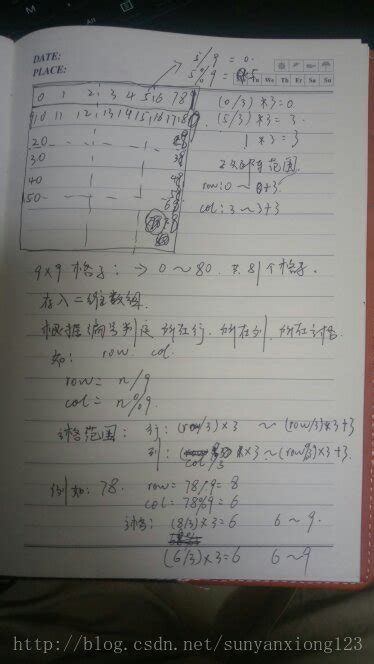 DATE:
PLACE:
5/9 = 0.
5%9 = 5
Tu We Th Fr Sa Su
0 1 2 3 4 5 6 7 8
9 10 11 12 13 14 15 16 17 18
20
30
40
50
(0/3)*3=0
(5/3)*3=3
1*3=3
范围
row:0~0+3
col:3~3+3
9×9格子: → 0~80. 共81个格子.
存入二维数组.
根据编号判定 所在行, 所在列, 所在
如: row col
row = n/9
col = n%9.
格范围: 行:(row/3)×3 ~(row/3)*3+3
列:
col/3
*3~
*3+3.
例如: 78. row = 78/9=8
col = 78%9=6
(8/3)×3=6 6~9.
(6/3)×3=6 6~9
http://blog.csdn.net/sunyanxiong123